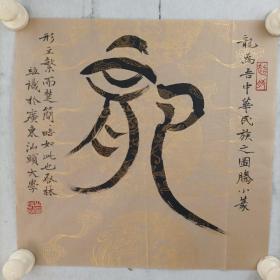 龍為吾中華民族之圖騰小篆
龍
形立繁而楚簡略如此也啟林
並識於廣東汕頭大學